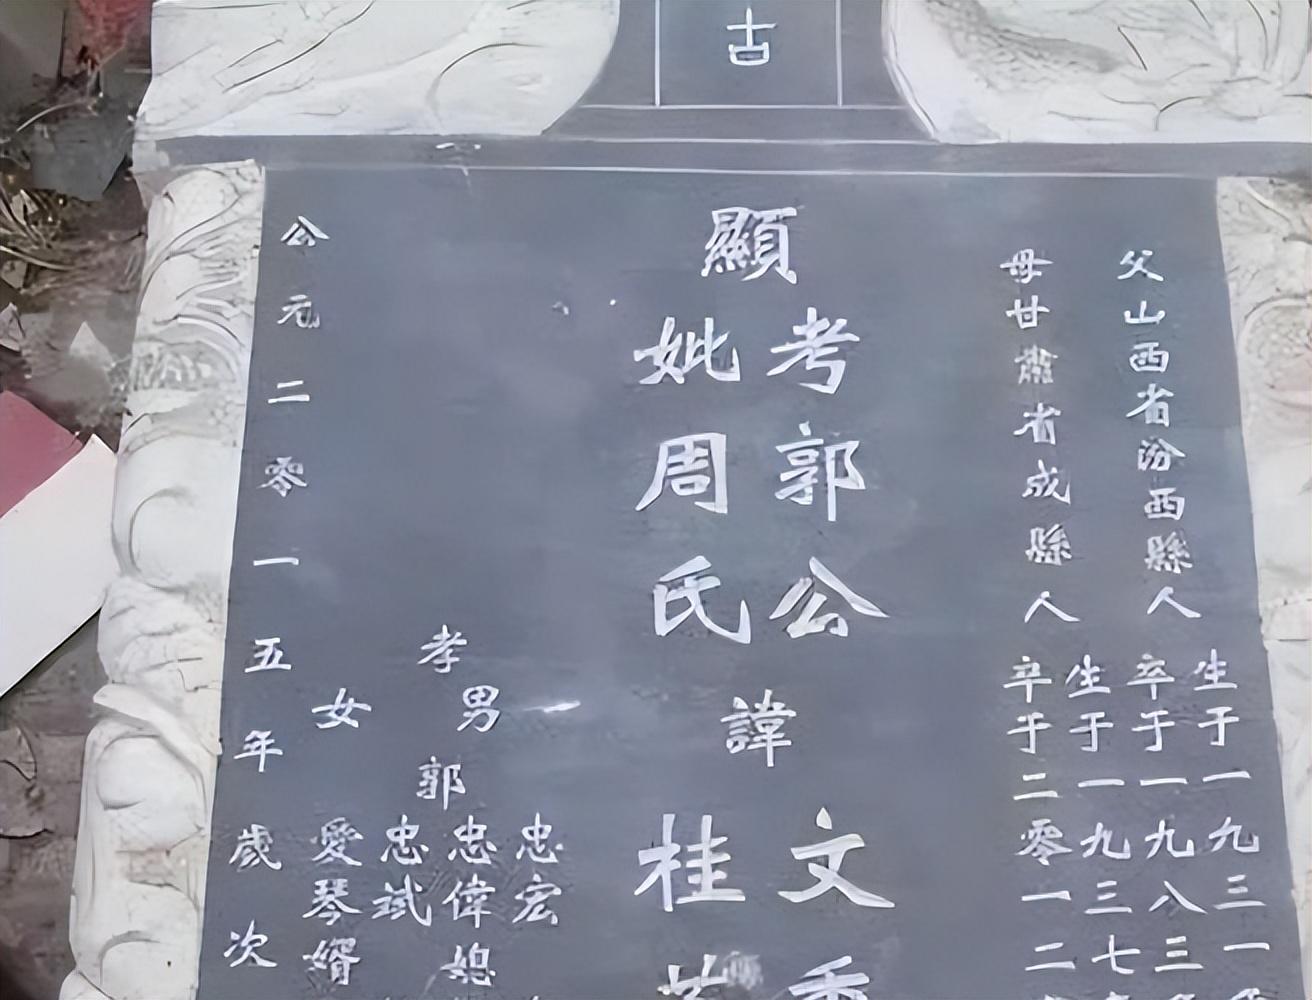 古
父山西省汾西縣人
生于一九三一
卒于一九八三
母甘肅省成縣人
生于一九三七
卒于二零一二
顯
考郭公
妣周氏
諱
文
桂
孝
男
女
郭
忠宏
忠偉媳
忠斌
愛琴婿
公元二零一五年歲次